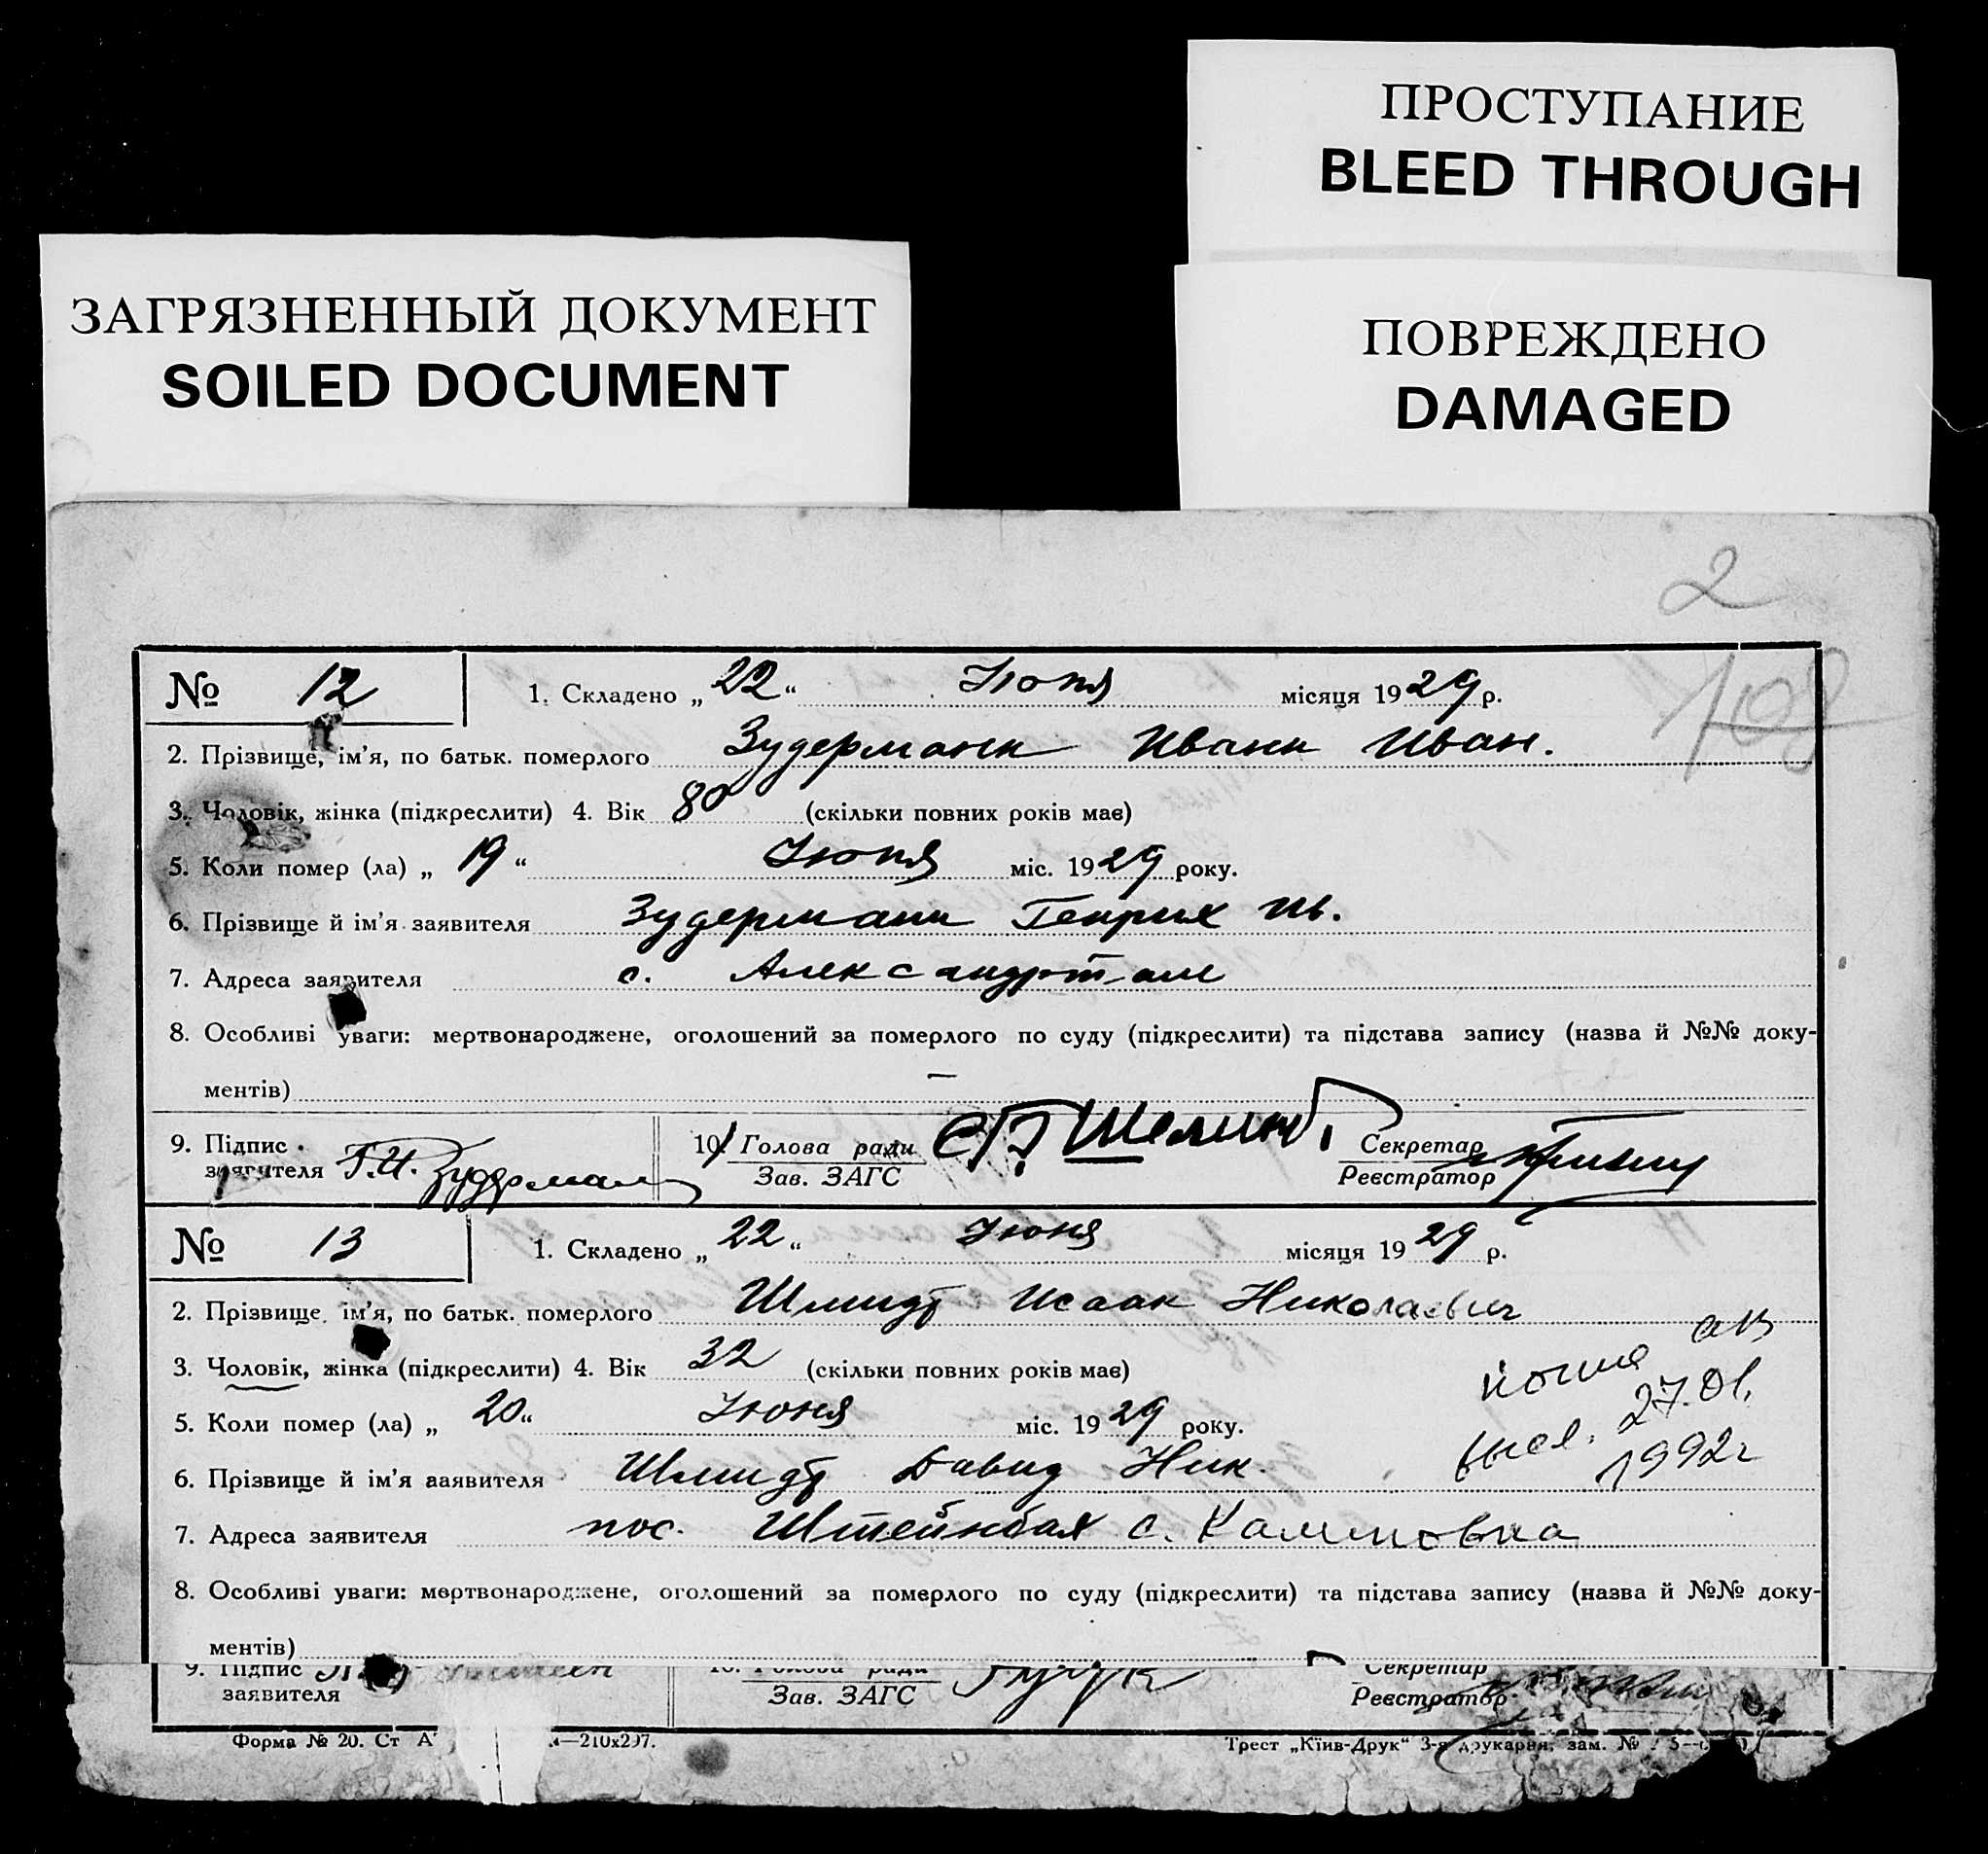 ПРОСТУПАНИЕ
BLEED THROUGH
ЗАГРЯЗНЕННЫЙ ДОКУМЕНТ
SOILED DOCUMENT
ПОВРЕЖДЕНО
DAMAGED
2
108
№ 12 1. Складено „ 22 “ Июня місяця 1929 р.
2. Прізвище, ім’я, по батьк. померлого Зудерманн Иванн Иван.
3. Чоловік, жінка (підкреслити) 4. Вік 80 (скільки повних років має)
5. Коли помер (ла) „ 19 “ Июня міс. 1929 року.
6. Прізвище й ім’я заявителя Зудерманн Генрих Ив.
7. Адреса заявителя с. Александрталь
8. Особливі уваги: мертвонароджене, оголошений за померлого по суду (підкреслити) та підстава запису (назва й №№ доку-
ментів) —
9. Підпис заявителя Г.И. Зудерман 10. Голова ради Зав. ЗАГС Секретар Реєстратор
№ 13 1. Складено „ 22 “ Июня місяця 1929 р.
2. Прізвище, ім’я, по батьк. померлого Шмидт Исаак Николаевич
3. Чоловік, жінка (підкреслити) 4. Вік 32 (скільки повних років має)
5. Коли помер (ла) „ 20 “ Июня міс. 1929 року.
6. Прізвище й ім’я заявителя Шмидт Давид Ник.
7. Адреса заявителя пос. Штейнбах с. Калиновка
копия
27.01.
1992г
8. Особливі уваги: мертвонароджене, оголошений за померлого по суду (підкреслити) та підстава запису (назва й №№ доку-
ментів)
9. Підпис заявителя 10. Голова ради Зав. ЗАГС Секретар Реєстратор
Форма № 20. Ст —210х297. Трест „Київ-Друк“ 3-я друкарня, зам. №